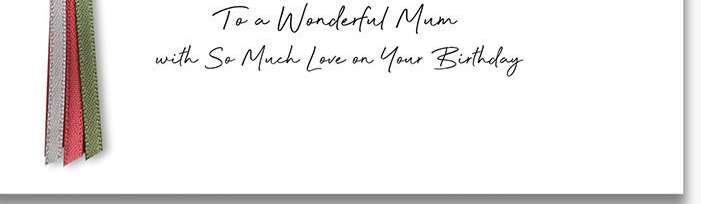 To a Wonderful Mum
with So Much Love on Your Birthday